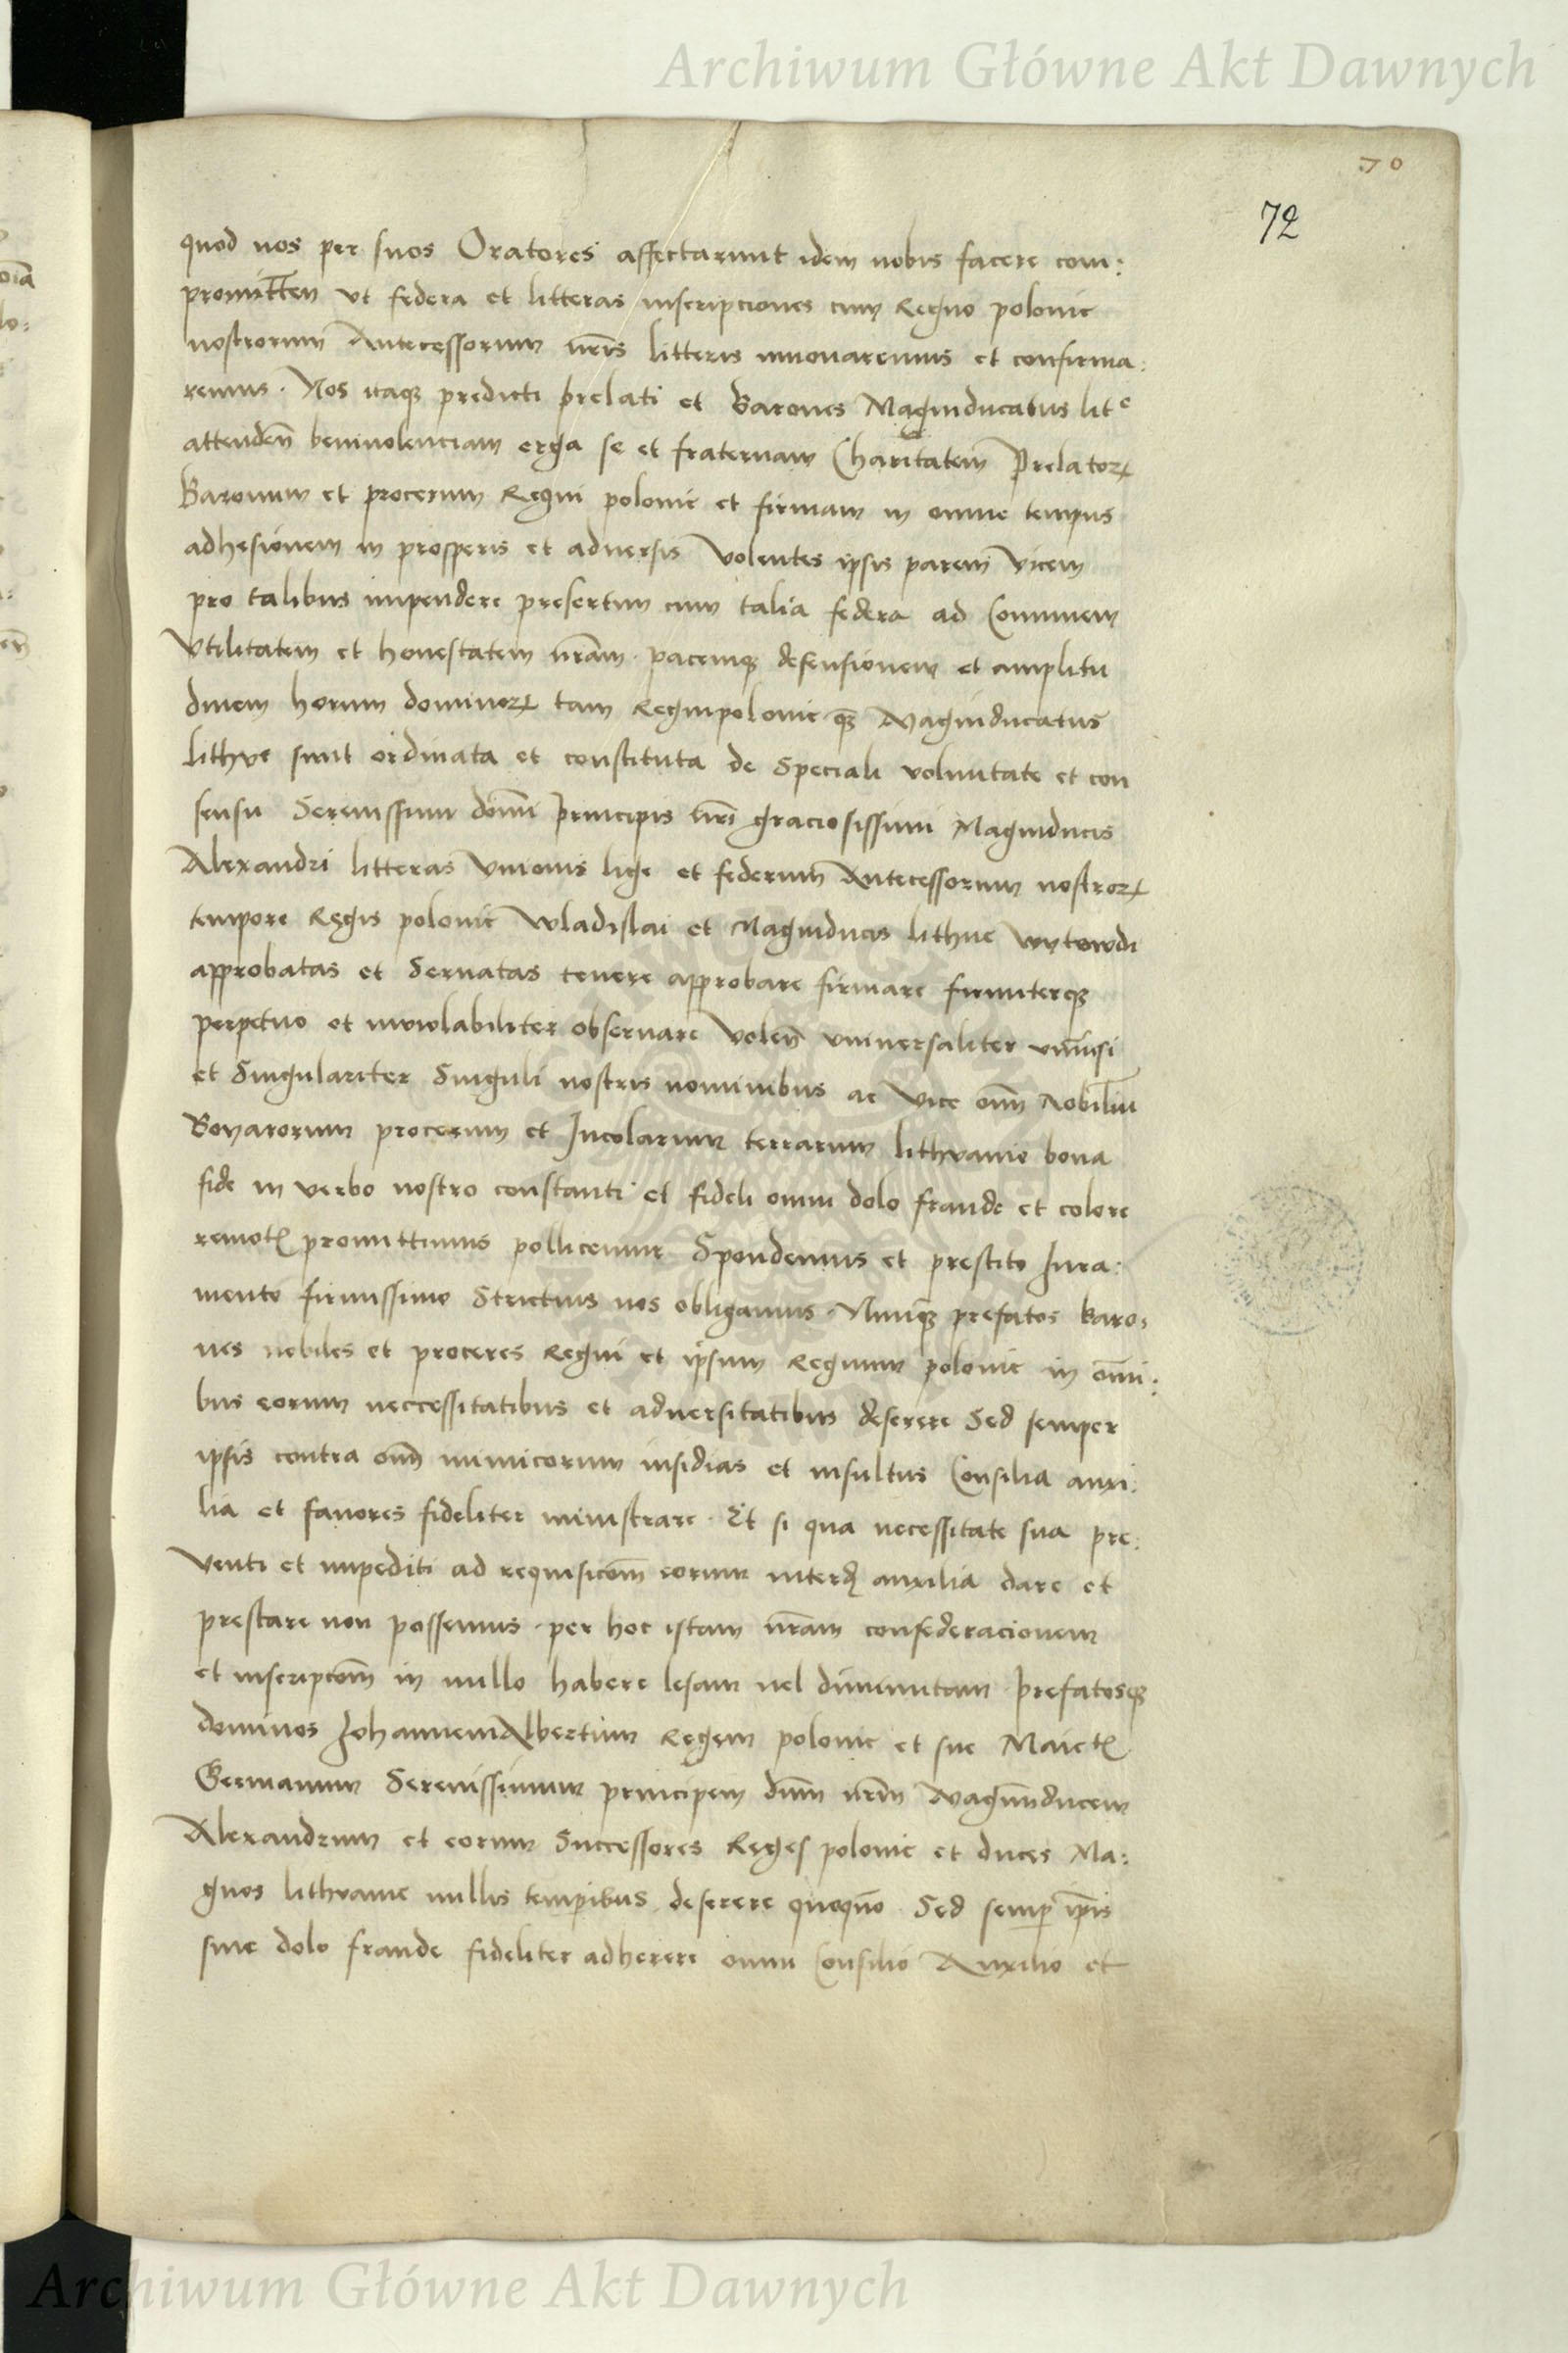 Archiwum Główne Akt Dawnych
70
72
quod nos per suos Oratores affectarunt idem nobis facere com:
promitten̄ vt federa et litteras inscripciones cum Regno polonie
nostrorum Antecessorum nr̄is litteris innouaremus et confirma:
remus. Nos itaqꝫ predicti prelati et Barones Magniducatus litͤ
attenden̄ beniuolenciam erga se et fraternam Charitatem Prelatorꝝ
Baronum et procerum Regni polonie et firmam in omne tempus
adhesionem in prosperis et aduersis Volentes ipsis parem Vicem
pro talibus impendere presertim cum talia federa ad Communem
Vtilitatem et honestatem nr̄am. pacemqꝫ defensionem et amplitu
dinem horum dominorꝝ tam Regnipolonie qꝫ Magniducatus
Lithve sunt ordinata et constituta de Speciali voluntate et con
sensu Serenissimi domī Principis nr̄i graciosissimi Magniducis
Alexandri litteras Vnionis lige et federum Antecessorum nostrorꝝ
tempore Regis polonie Wladislai et Magniducis lithue wytowdi
approbatas et Seruatas tenere approbare firmare firmiterqꝫ
perpetuo et inviolabiliter obseruare Volen̄ vniuersaliter vniu̅si
et Singulariter Singuli nostris nominibus ac Vice om̄ Nobiliū
Boyarorum procerum et Incolarum terrarum lithvanie bona
fide in verbo nostro constanti et fideli omni dolo fraude et colore
remotꝭ promittimus pollicemur Spondemus et prestito Iura:
mento firmissimo Strictius nos obligamus. Nunqꝫ prefatos baro:
nes nobiles et proceres Regni et ipsum Regnum polonie in om̄i:
bus eorum neccessitatibus et aduersitatibus deserere Sed semper
ipsis contra om̄ inimicorum insidias et insultus Consilia auxi:
lia et fauores fideliter ministrare. Et si qua necessitate sua pre:
Venti et impediti ad requisicōm eorum interd̄ auxilia dare et
prestare non possemus. per hoc istam nr̄am confederacionem
et inscripcōm in nullo habere lesam uel diminutam prefatosqꝫ
dominos JohannemAlbertum Regem polonie et sue Maietꝭ
Germanum Serenissimum principem dn̄m nr̄m Magnnducem
Alexandrum et eorum Successores Reges polonie et duces Ma:
gnos lithvanie nullis temp̄ibus deserere quoquō. Sed semp̄ ip̄is
sine dolo fraude fideliter adherere omni Consilio Auxilio et
Archiwum Główne Akt Dawnych